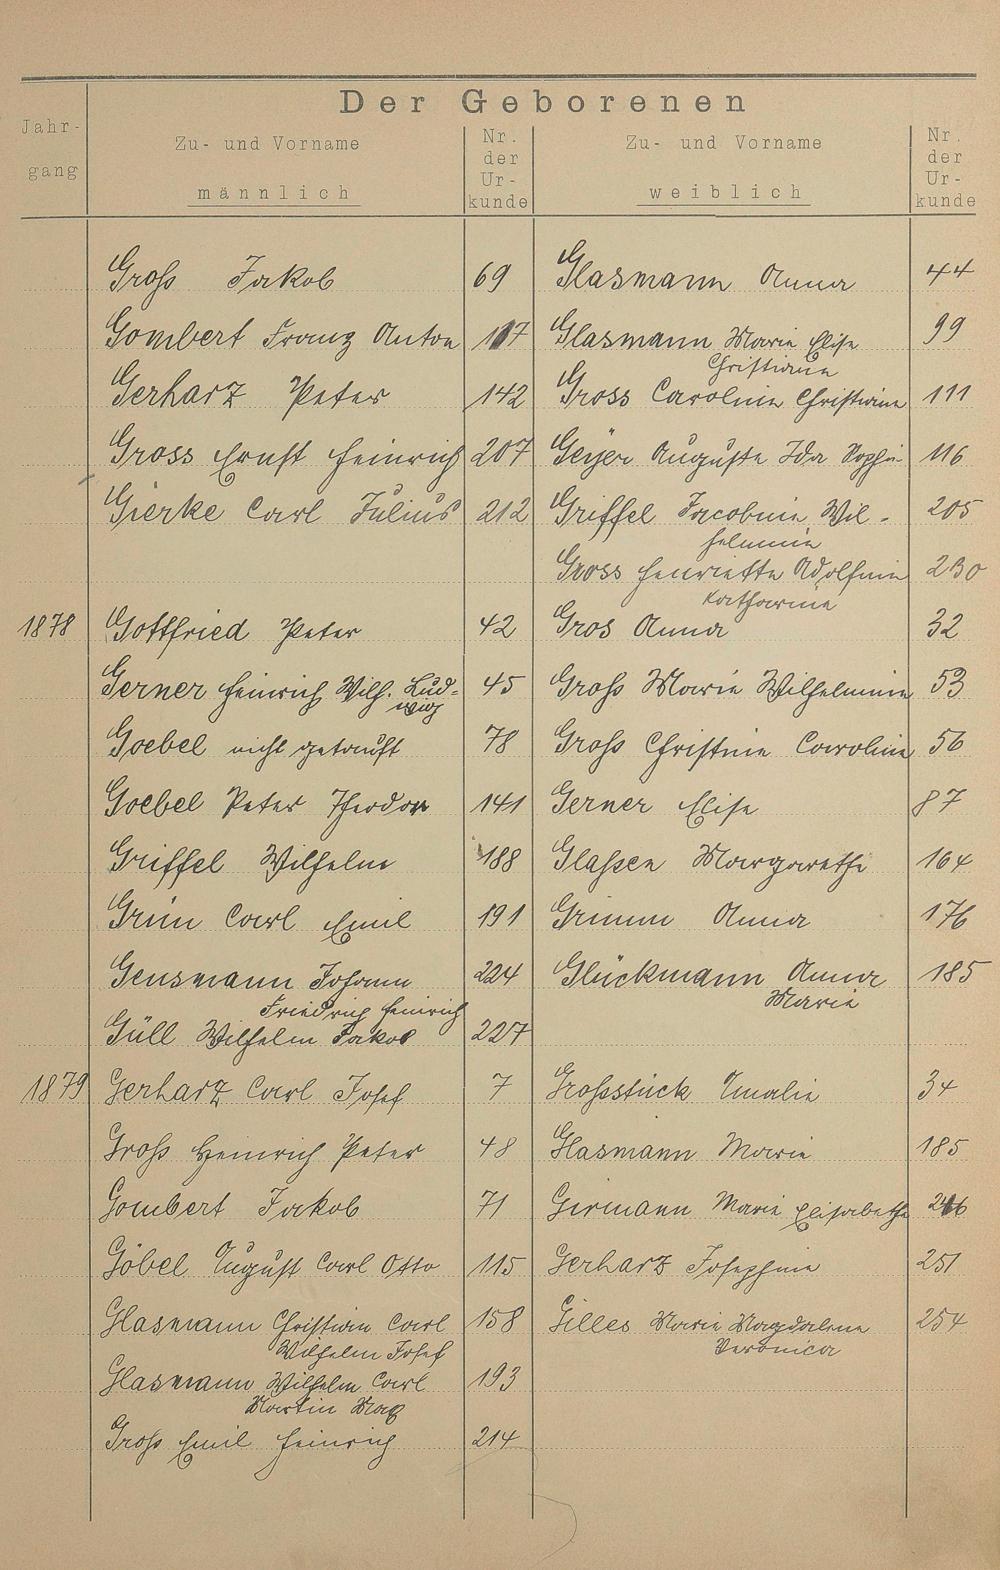 Der Geborenen
Jahr-
gang
Zu- und Vorname
männlich
Nr.
der
Ur-
kunde
Zu- und Vorname
weiblich
Nr.
der
Ur-
kunde
Groß Jakob 69 Glasmann Anna 44
Gombert Franz Anton 117 Glasmann Marie Elise 99
Christiane
Gerharz Peter 142 Gross Caroline Christiane 111
Gross Ernst Heinrich 207 Geyer Auguste Ida Sophie 116
Gierke Carl Julius 212 Griffel Jacobine Wil- 205
helmine
Gross Henriette Adolfine 230
Katharine
1878 Gottfried Peter 42 Gros Anna 32
Gerner Heinrich Wilh. Lud- 45 Groß Marie Wilhelmine 53
wig
Goebel nicht getauft 78 Groß Christine Caroline 56
Goebel Peter Theodor 141 Gerner Elise 87
Griffel Wilhelm 188 Glaßen Margarethe 164
Grün Carl Emil 191 Grimm Anna 176
Gensmann Johann 224 Glückmann Anna 185
Friedrich Heinrich Marie
Güll Wilhelm Jakob 227
1879 Gerharz Carl Josef 7 Großstück Amalie 34
Groß Heinrich Peter 48 Glasmann Marie 185
Gombert Jakob 71 Girmann Marie Elisabethe
Göbel August Carl Otto 115 Gerharz Josephine 251
Glasmann Christian Carl 158 Gilles Marie Magdalena 254
Wilhelm Josef Veronica
Glasmann Wilhelm Carl 193
Martin Max
Groß Emil Heinrich 214